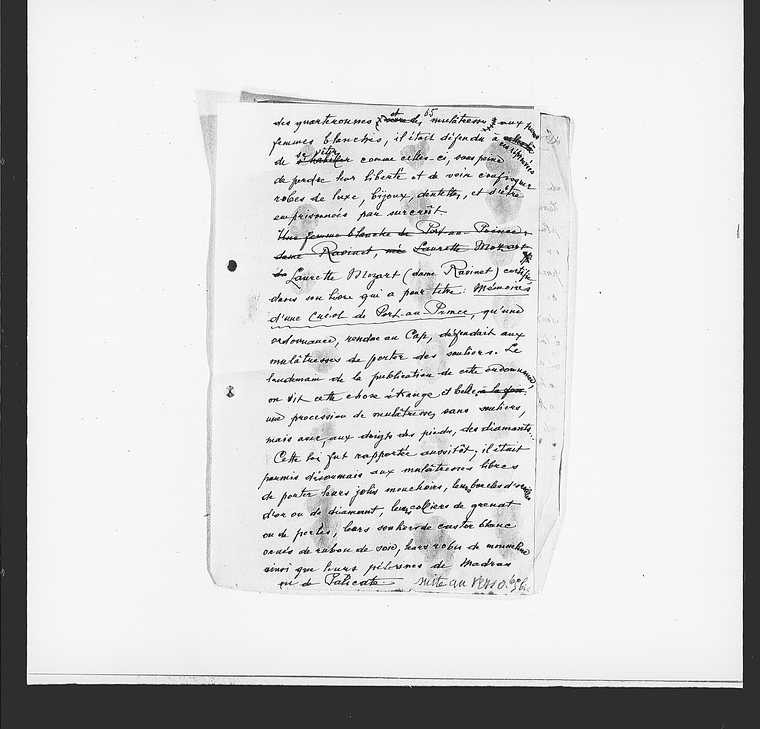 65
des quarteronnes et des mulâtresses aux
femmes blanches, il était défendu à
de se vêtir comme celles-ci, sous peine
de perdre leur liberté et de voir confisquer
robes de luxe, bijoux, dentelles, et d'être
emprisonnées par surcroît.
Une femme blanche de Port-au-Prince,
dame Ravinet, née Laurette Mozart
Laurette Mozart (dame Ravinet) certifie
dans son livre qui a pour titre : Mémoires
d'une Créole de Port-au-Prince, qu'une
ordonnance, rendue au Cap, défendait aux
mulâtresses de porter des souliers. Le
lendemain de la publication de cette ordonnance,
on vit cette chose étrange et belle,
une procession de mulâtresses, sans souliers,
mais avec, aux doigts des pieds, des diamants.
Cette loi fut rapportée aussitôt ; il était
permis désormais aux mulâtresses libres
de porter leurs jolis mouchoirs, leurs boucles d'oreilles
d'or ou de diamant, leurs colliers de grenat
ou de perles, leurs souliers de castor blanc
ornés de ruban de soie, leurs robes de mousseline
ainsi que leurs pélerines de Madras
ou de Paliacate. suite au verso